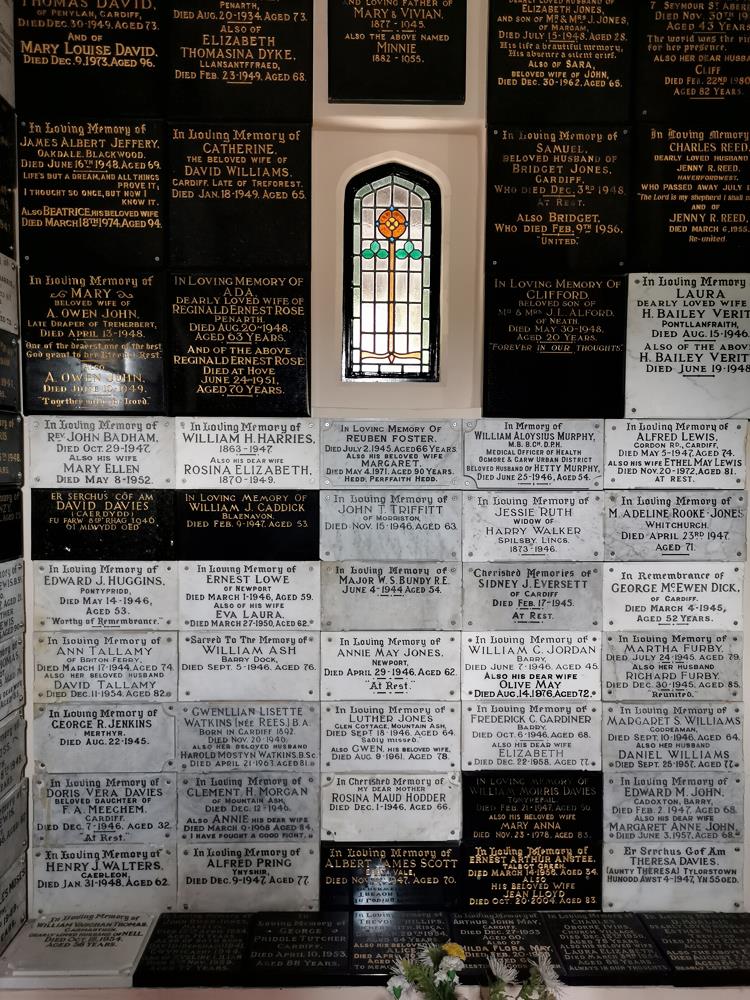 THOMAS DAVID,
OF PENYLAN, CARDIFF,
DIED DEC. 30-1949. AGED 73.
AND OF
MARY LOUISE DAVID,
DIED DEC. 9, 1973, AGED 96.
PENARTH,
DIED AUG. 20-1934. AGED 73.
ALSO OF
ELIZABETH
THOMASINA DYKE,
LLANSANTFFRAED,
DIED FEB. 23-1949. AGED 68.
AND LOVING FATHER OF
MARY & VIVIAN.
1877 - 1045.
ALSO THE ABOVE NAMED
MINNIE
1882 - 1055.
ELIZABETH JONES,
AND SON OF MR & MRS J. JONES,
OF MARGAM,
DIED JULY 15-1948. AGED 28.
His life a beautiful memory,
His absence a silent grief.
ALSO OF SARA,
BELOVED WIFE OF JOHN,
DIED DEC. 30-1962. AGED 65.
7 SEYMOUR ST. ABER
DIED NOV. 30TH 19
AGED 43 YEARS
for her presence.
ALSO HER DEAR HUSBA
CLIFF
DIED FEB. 22ND 1980
AGED 82 YEARS.
In Loving Memory of
JAMES ALBERT JEFFERY,
OAKDALE, BLACKWOOD.
DIED JUNE 16TH 1948. AGED 69.
LIFE'S BUT A DREAM, AND ALL THINGS
PROVE IT;
I THOUGHT SO ONCE, BUT NOW I
KNOW IT.
ALSO BEATRICE, HIS BELOVED WIFE
DIED MARCH 18TH 1974. AGED 94.
In Loving Memory of
CATHERINE,
THE BELOVED WIFE OF
DAVID WILLIAMS.
CARDIFF. LATE OF TREFOREST.
DIED JAN. 18-1949. AGED 65.
In Loving Memory of
SAMUEL,
BELOVED HUSBAND OF
BRIDGET JONES,
CARDIFF,
WHO DIED DEC. 3RD 1948.
AT REST.
ALSO BRIDGET,
WHO DIED FEB. 9TH 1956.
"UNITED."
In Loving Memory of
CHARLES REED,
DEARLY LOVED HUSBAND
JENNY R. REED,
HAVERFORDWEST.
WHO PASSED AWAY JULY 1
"The Lord is my shepherd I shall n
AND OF
JENNY R. REED,
DIED MARCH 6, 1955.
Re-united.
In Loving Memory of
MARY
BELOVED WIFE OF
A. OWEN JOHN,
LATE DRAPER OF TREHERBERT,
DIED APRIL 13-1948.
"One of the dearest one of the best
God grant to her Eternal Rest."
ALSO
A. OWEN JOHN,
"Together with the Lord."
IN LOVING MEMORY OF
ADA,
DEARLY LOVED WIFE OF
REGINALD ERNEST ROSE
PENARTH
DIED AUG. 20-1948.
AGED 63 YEARS.
AND OF THE ABOVE
REGINALD ERNEST ROSE
DIED AT HOVE
JUNE 24-1951,
AGED 70 YEARS.
IN LOVING MEMORY OF
CLIFFORD,
BELOVED SON OF
MR & MRS J. L. ALFORD.
OF NEATH
DIED MAY 30-1948.
AGED 20 YEARS.
"FOREVER IN OUR THOUGHTS."
In Loving Memory
LAURA
DEARLY LOVED WIFE
H. BAILEY VERIT
PONTLLANFRAITH,
DIED AUG. 15-1946
ALSO THE ABOVE
H. BAILEY VERIT
DIED JUNE 19-1948
In Loving Memory of
REV JOHN BADHAM,
DIED OCT. 29-1947.
ALSO HIS WIFE
MARY ELLEN
DIED MAY 8-1952.
In Loving Memory of
WILLIAM H. HARRIES,
1863-1947
ALSO HIS DEAR WIFE
ROSINA ELIZABETH,
1870-1949.
IN LOVING MEMORY OF
REUBEN FOSTER,
DIED JULY 2, 1945. AGED 66 YEARS.
ALSO HIS BELOVED WIFE
MARGARET,
DIED MAY 4, 1971, AGED 90 YEARS.
HEDD, PERFFAITH HEDD.
In Memory of
WILLIAM ALOYSIUS MURPHY,
M.B. B.CH. D.P.H.
MEDICAL OFFICER OF HEALTH
OGMORE & GARW URBAN DISTRICT
BELOVED HUSBAND OF HETTY MURPHY,
DIED JUNE 25-1946, AGED 54.
In Loving Memory of
ALFRED LEWIS,
GORDON RD., CARDIFF,
DIED MAY 5-1947, AGED 74.
ALSO HIS WIFE ETHEL MAY LEWIS
DIED NOV. 20-1972, AGED 81.
AT REST.
ER SERCHUS COF AM
DAVID DAVIES
(CAERDYDD)
61 MLWYDD OED
IN LOVING MEMORY OF
WILLIAM J. CADDICK
BLAENAVON.
DIED FEB. 9-1947. AGED 53.
In Loving Memory of
JOHN T. TRIFFITT
OF MORRISTON,
DIED NOV. 15-1946. AGED 63.
In Loving Memory of
JESSIE RUTH
WIDOW OF
HARRY WALKER
SPILSBY, LINCS.
1873-1946.
In Loving Memory of
M. ADELINE ROOKE-JONES
WHITCHURCH.
DIED APRIL 23RD 1947.
AGED 71.
In Loving Memory of
EDWARD J. HUGGINS,
PONTYPRIDD,
DIED MAY 14-1946,
AGED 53.
"Worthy of Remembrance."
In Loving Memory of
ERNEST LOWE
OF NEWPORT
DIED MARCH 1-1946, AGED 59.
ALSO OF HIS WIFE
EVA LAURA,
DIED MARCH 27-1950, AGED 62.
In Loving Memory of
MAJOR W. S. BUNDY R.E.
JUNE 4-1944 AGED 54.
Cherished Memories of
SIDNEY J. EVERSETT
OF CARDIFF
DIED FEB. 17-1945.
AT REST.
In Remembrance of
GEORGE MCEWEN DICK,
OF CARDIFF.
DIED MARCH 4-1945,
AGED 52 YEARS.
In Loving Memory of
ANN TALLAMY
OF BRITON FERRY,
DIED MARCH 17-1944, AGED 74.
ALSO HER BELOVED HUSBAND
DAVID TALLAMY
DIED DEC. 11-1954, AGED 82.
Sacred To The Memory of
WILLIAM ASH
BARRY DOCK,
DIED SEPT. 5-1946, AGED 76.
In Loving Memory of
ANNIE MAY JONES,
NEWPORT,
DIED APRIL 29-1946, AGED 62.
"At Rest."
In Loving Memory of
WILLIAM C. JORDAN
BARRY,
DIED JUNE 7-1946, AGED 45.
ALSO HIS DEAR WIFE
OLIVE MAY
DIED AUG. 14, 1976, AGED 72.
In Loving Memory of
MARTHA FURBY,
DIED JULY 24-1945. AGED 79.
ALSO HER HUSBAND
RICHARD FURBY,
DIED DEC. 30-1945, AGED 85.
Reunited.
In Loving Memory of
GEORGE R. JENKINS
MERTHYR.
DIED AUG. 22-1945.
GWENLLIAN LISETTE
WATKINS (NÉE REES,) B.A.
BORN IN CARDIFF 1892.
DIED NOV. 20-1946.
ALSO HER BELOVED HUSBAND
HAROLD MOSTYN WATKINS, B.SC.
DIED APRIL 21-1963, AGED 81.
In Loving Memory of
LUTHER JONES
GLEN COTTAGE, MOUNTAIN ASH,
DIED SEPT 18-1946, AGED 64.
Sadly missed.
ALSO GWEN, HIS BELOVED WIFE,
DIED AUG. 9-1961, AGED 78.
In Loving Memory of
FREDERICK C. GARDINER
BARRY,
DIED OCT. 6-1946, AGED 68.
ALSO HIS DEAR WIFE
ELIZABETH
DIED DEC. 22-1958, AGED 77.
In Loving Memory of
MARGARET S. WILLIAMS
GODREAMAN,
DIED SEPT. 10-1946, AGED 64.
ALSO HER HUSBAND
DANIEL WILLIAMS
DIED SEPT. 25-1951, AGED 77.
In Loving Memory of
DORIS VERA DAVIES
BELOVED DAUGHTER OF
F. A. MEECHEM,
CARDIFF.
DIED DEC. 7-1946, AGED 32.
"At Rest."
In Loving Memory of
CLEMENT H. MORGAN
OF MOUNTAIN ASH,
DIED DEC. 12-1946.
ALSO ANNIE HIS DEAR WIFE
DIED MARCH 9-1968 AGED 84.
"I HAVE FOUGHT A GOOD FIGHT."
In Cherished Memory of
MY DEAR MOTHER
ROSINA MAUD HODDER
DIED DEC. 1-1946, AGED 66.
IN LOVING MEMORY OF
WILLIAM MORRIS DAVIES
TONYREFAIL.
DIED FEB. 21-1947, AGED 50.
ALSO HIS BELOVED WIFE
MARY ANNA
DIED NOV. 23-1978, AGED 83.
In Loving Memory of
EDWARD M. JOHN,
CADOXTON, BARRY,
DIED FEB. 2-1947, AGED 68.
ALSO HIS DEAR WIFE
MARGARET ANNE JOHN,
DIED JUNE 3, 1957, AGED 68.
In Loving Memory of
HENRY J. WALTERS,
CAERLEON,
DIED JAN. 31-1948, AGED 62.
In Loving Memory of
ALFRED PRING
YNYSHIR,
DIED DEC. 9-1947, AGED 77.
In Loving Memory of
ALBERT JAMES SCOTT
AGED 70.
In Loving Memory of
ERNEST ARTHUR ANSTEE,
TALBOT GREEN,
DIED MARCH 14-1956, AGED 34.
ALSO
HIS BELOVED WIFE
JEAN LLOYD
DIED OCT. 20-2004, AGED 83.
Er Serchus Gof Am
THERESA DAVIES.
(AUNTY THERESA) TYLORSTOWN
HUNODD AWST 4-1947, YN 55 OED.
In Loving Memory of
WILLIAM VAUGHAN THOMAS,
CARMARTHEN,
DEARLY LOVED HUSBAND OF NELL,
DIED OCT. 18, 1954,
AGED 58 YEARS.
In Loving Memory of
GEORGE
PRIDDLE TUTCHER
CARDIFF,
DIED APRIL 10, 1953,
AGED 88 YEARS.
In Loving Memory of
TREVOR PHILLIPS,
In Loving Memory of
ARTHUR JOHN MAY,
CARDIFF,
DIED DEC. 27-1953
HILDA FLORA MAY